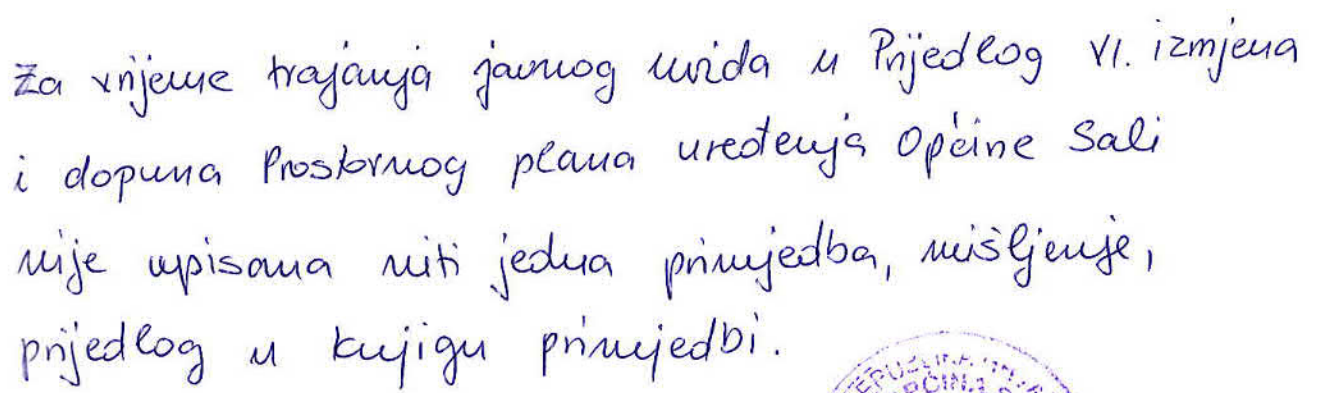 Za vrijeme trajanja javnog uvida u Prijedlog VI. izmjena
i dopuna Prostornog plana uređenja Općine Sali
nije upisana niti jedna primjedba, mišljenje,
prijedlog u knjigu primjedbi.